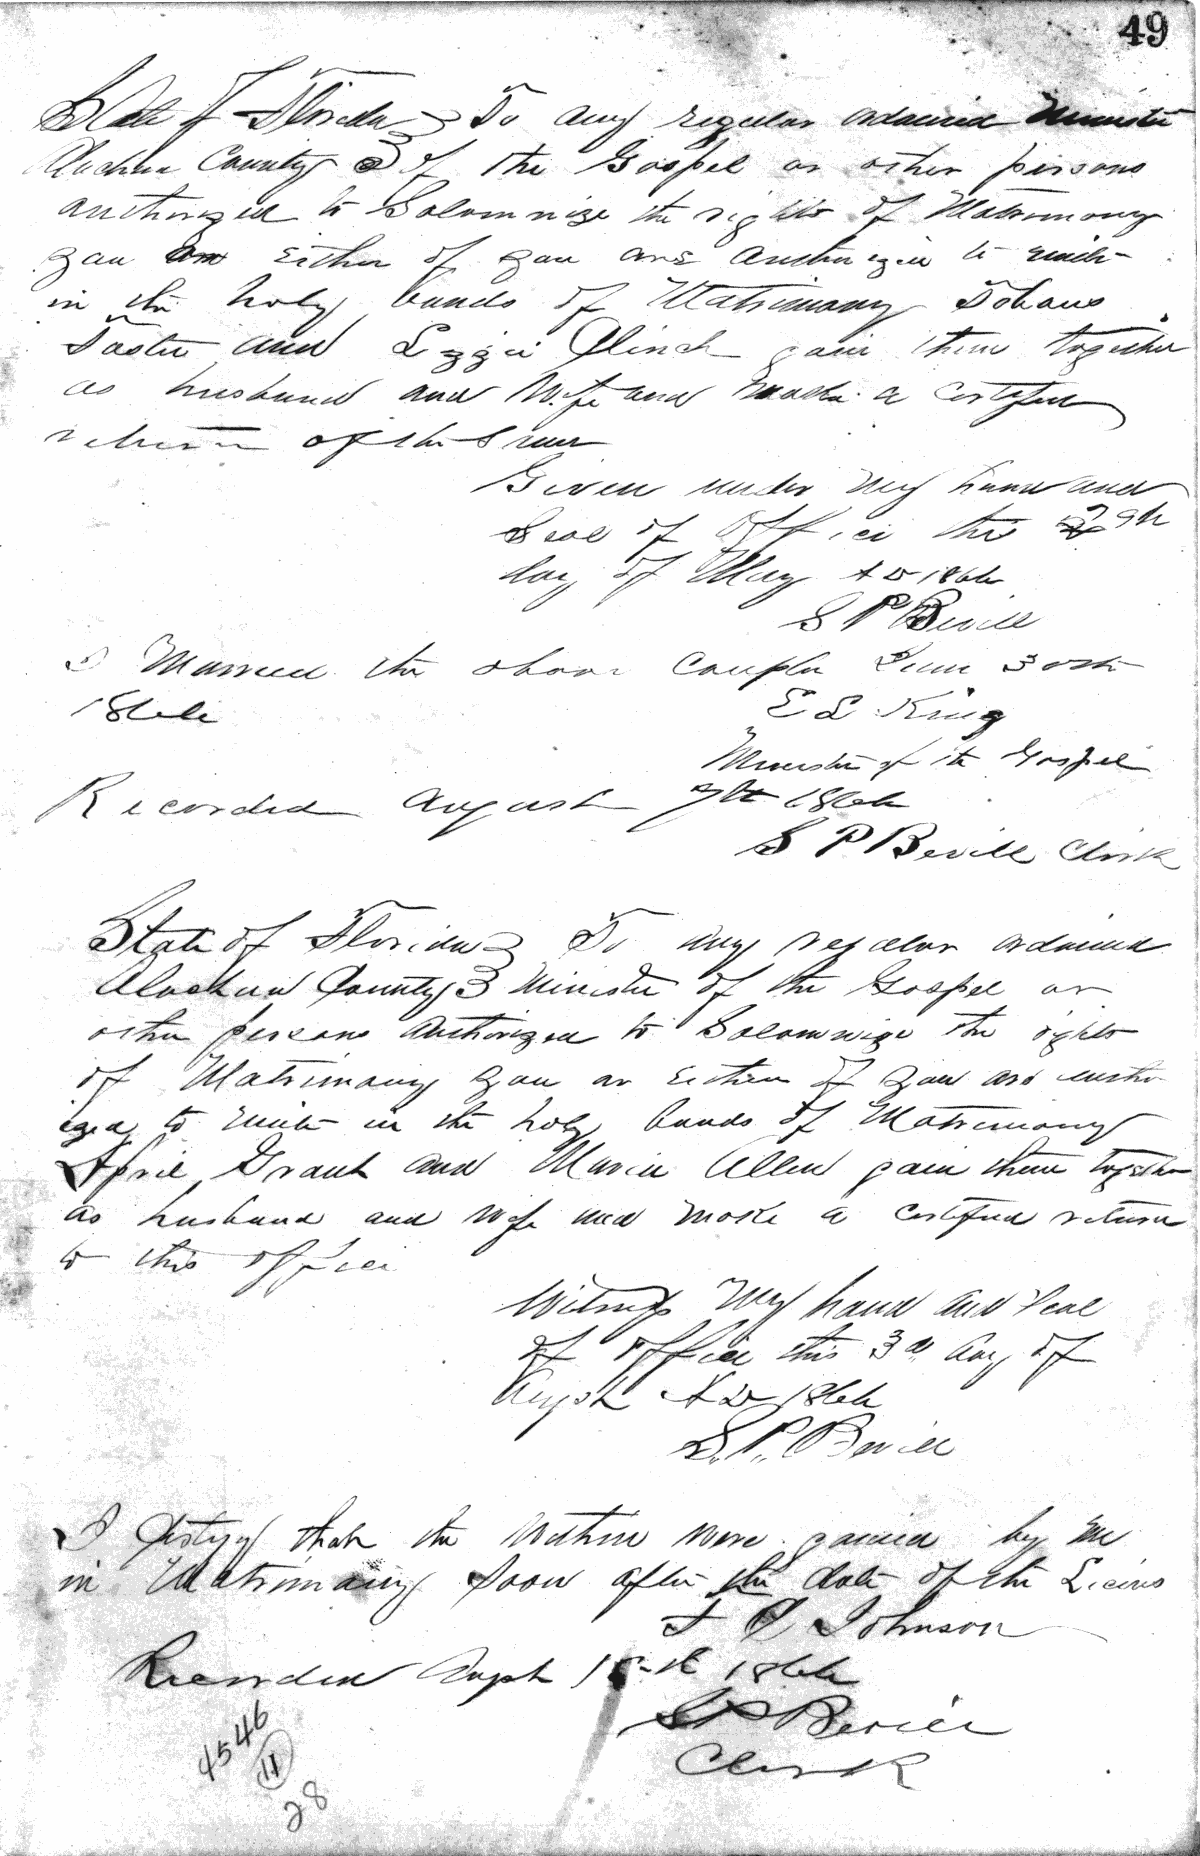 49
State of Florida } To any regular ordained Minister
Alachua County } of the Gospel or other persons
authorized to Solomnize the rights of Matrimony
you or either of you are authorized to unite
in the holy bands of Matrimony
Foster and Lizzie Clinch join them together
as husband and Wife and make a certified
return of the Same
Given under my hand and
Seal of Office this 29th
day of May A D 1866
S P Bevill
I Married the above Couple June 30th
1866
E L King
Minister of the Gospel
Recorded August 7th 1866
S P Bevill Clerk
State of Florida } To any regular ordained
Alachua County } Minister of the Gospel or
other persons authorized to Solomnize the rights
of Matrimony you or either of you are autho
ized to unite in the holy bands of Matrimony
April Grant and Maria Allen join them together
as husband and wife and make a certified return
to this office
Witness My hand and Seal
of office this 3d day of
Augst A D 1866
S. P. Bevill
I Certify that the within were joined by me
in Matrimony Soon after the date of the Licens
Johnson
Recorded Augst 15th 1866
S P Bevill
Clerk
4546
11
28